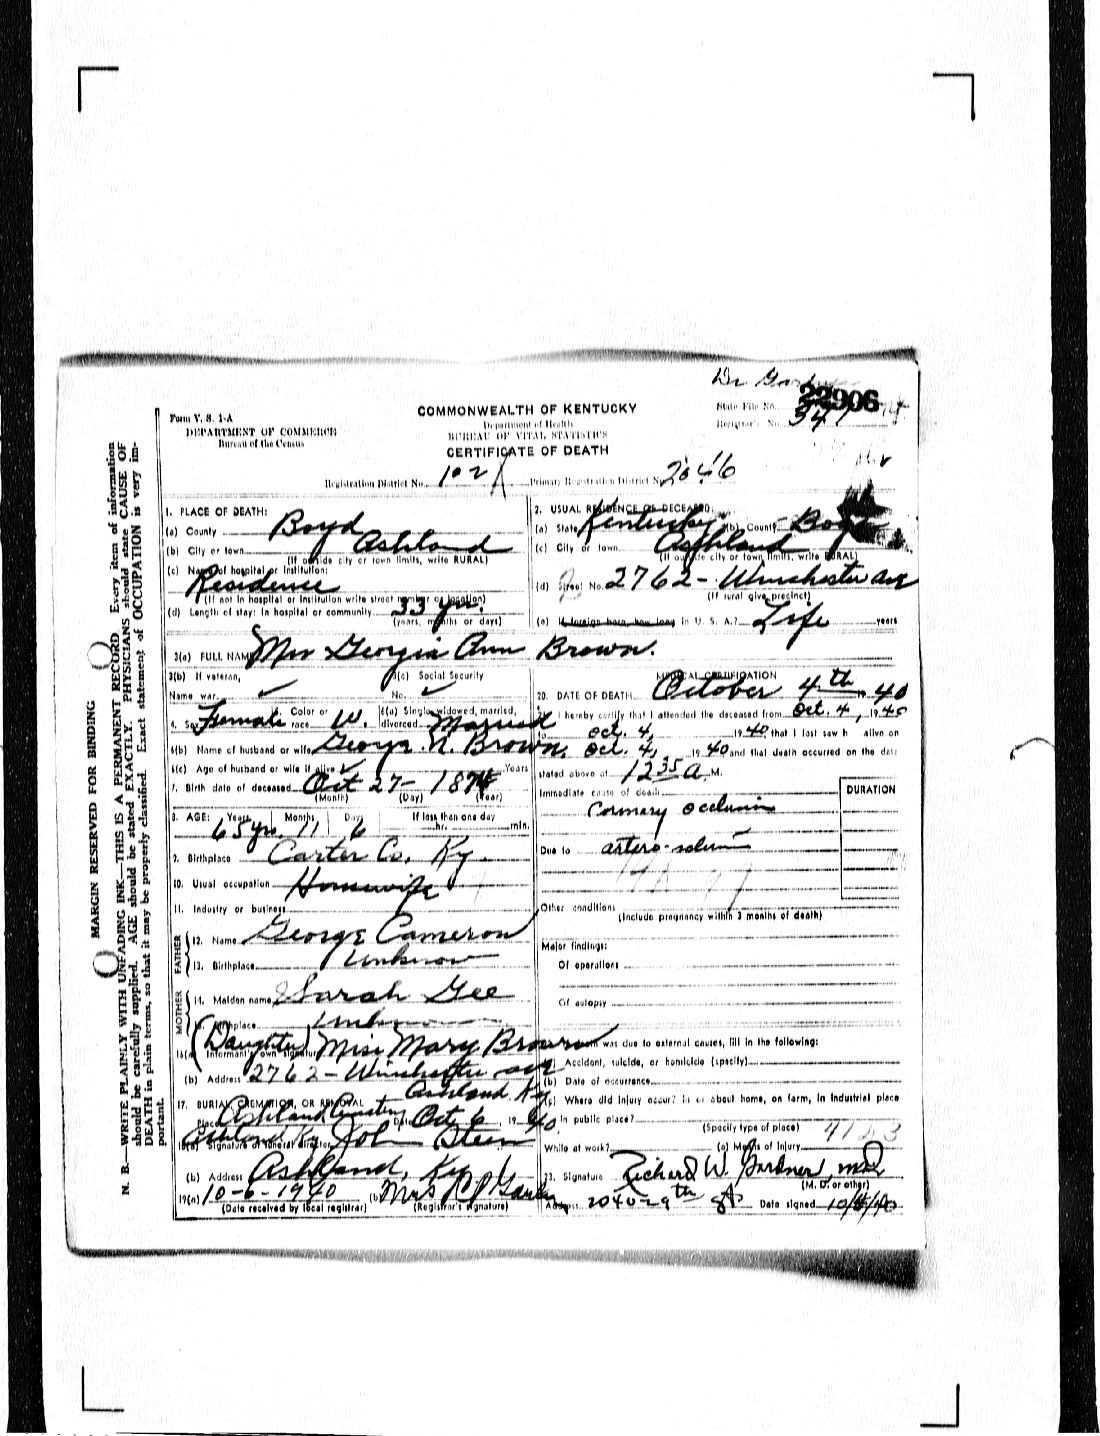 Form V. S. 1-A
DEPARTMENT OF COMMERCE
Bureau of the Census
COMMONWEALTH OF KENTUCKY
Department of Health
BUREAU OF VITAL STATISTICS
CERTIFICATE OF DEATH
State File No. 22906
Registrar's No. 347
Registration District No. 102
Primary Registration District No. 2046
MARGIN RESERVED FOR BINDING
N. B.—WRITE PLAINLY WITH UNFADING INK—THIS IS A PERMANENT RECORD. Every item of information
should be carefully supplied. AGE should be stated EXACTLY. PHYSICIANS should state CAUSE OF
DEATH in plain terms, so that it may be properly classified. Exact statement of OCCUPATION is very im-
portant.
1. PLACE OF DEATH:
(a) County Boyd
(b) City or town Ashland
(If outside city or town limits, write RURAL)
(c) Name of hospital or institution:
Residence
(If not in hospital or institution write street number or location)
(d) Length of stay: In hospital or community 33 yrs.
(years, months or days)
2. USUAL RESIDENCE OF DECEASED:
(a) State Kentucky (b) County Boyd
(c) City or town Ashland
(If outside city or town limits, write RURAL)
(d) Street No. 2762 - Winchester ave
(If rural give precinct)
(e) If foreign born, how long in U. S. A.? Life years
3(a) FULL NAME Mrs Georgia Ann Brown.
3(b) If veteran,
Name war
3(c) Social Security
No.
4. Sex Female Color or race W. 6(a) Single, widowed, married, divorced Married
6(b) Name of husband or wife George N. Brown.
6(c) Age of husband or wife if alive Years
7. Birth date of deceased Oct 27- 1874
(Month) (Day) (Year)
8. AGE: Years Months Days If less than one day
65 yrs. 11 6 hr. min.
9. Birthplace Carter Co. Ky.
10. Usual occupation Housewife
11. Industry or business
FATHER
12. Name George Cameron
13. Birthplace Unknown
MOTHER
14. Maiden name Sarah Gee
15. Birthplace Unknown
(Daughter) Miss Mary Brown
16(a) Informant's own signature
(b) Address 2762 - Winchester ave
Ashland, Ky
17. BURIAL, CREMATION, OR REMOVAL
Place Ashland Cemetery Date Oct 6, 1940
Ashland Ky John Steen
18(a) Signature of funeral director
(b) Address Ashland, Ky
19(a) 10-6-1940 (b) Mrs
(Date received by local registrar) (Registrar's signature)
MEDICAL CERTIFICATION
20. DATE OF DEATH October 4th 40
21. I hereby certify that I attended the deceased from Oct. 4, 1940
to Oct. 4, 1940, that I last saw h alive on
Oct. 4, 1940 and that death occurred on the date
stated above at 12 35 A. M.
Immediate cause of death
DURATION
Coronary occlusion
Due to artero-sclerosis
Other conditions
(Include pregnancy within 3 months of death)
Major findings:
Of operations
Of autopsy
22. If death was due to external causes, fill in the following:
(a) Accident, suicide, or homicide (specify)
(b) Date of occurrence
(c) Where did injury occur? in or about home, on farm, in industrial place
in public place?
(Specify type of place)
While at work? (e) Means of injury
23. Signature Richard W. Gardner, MD
(M. D. or other)
Address 2040-29th St Date signed 10/4/40